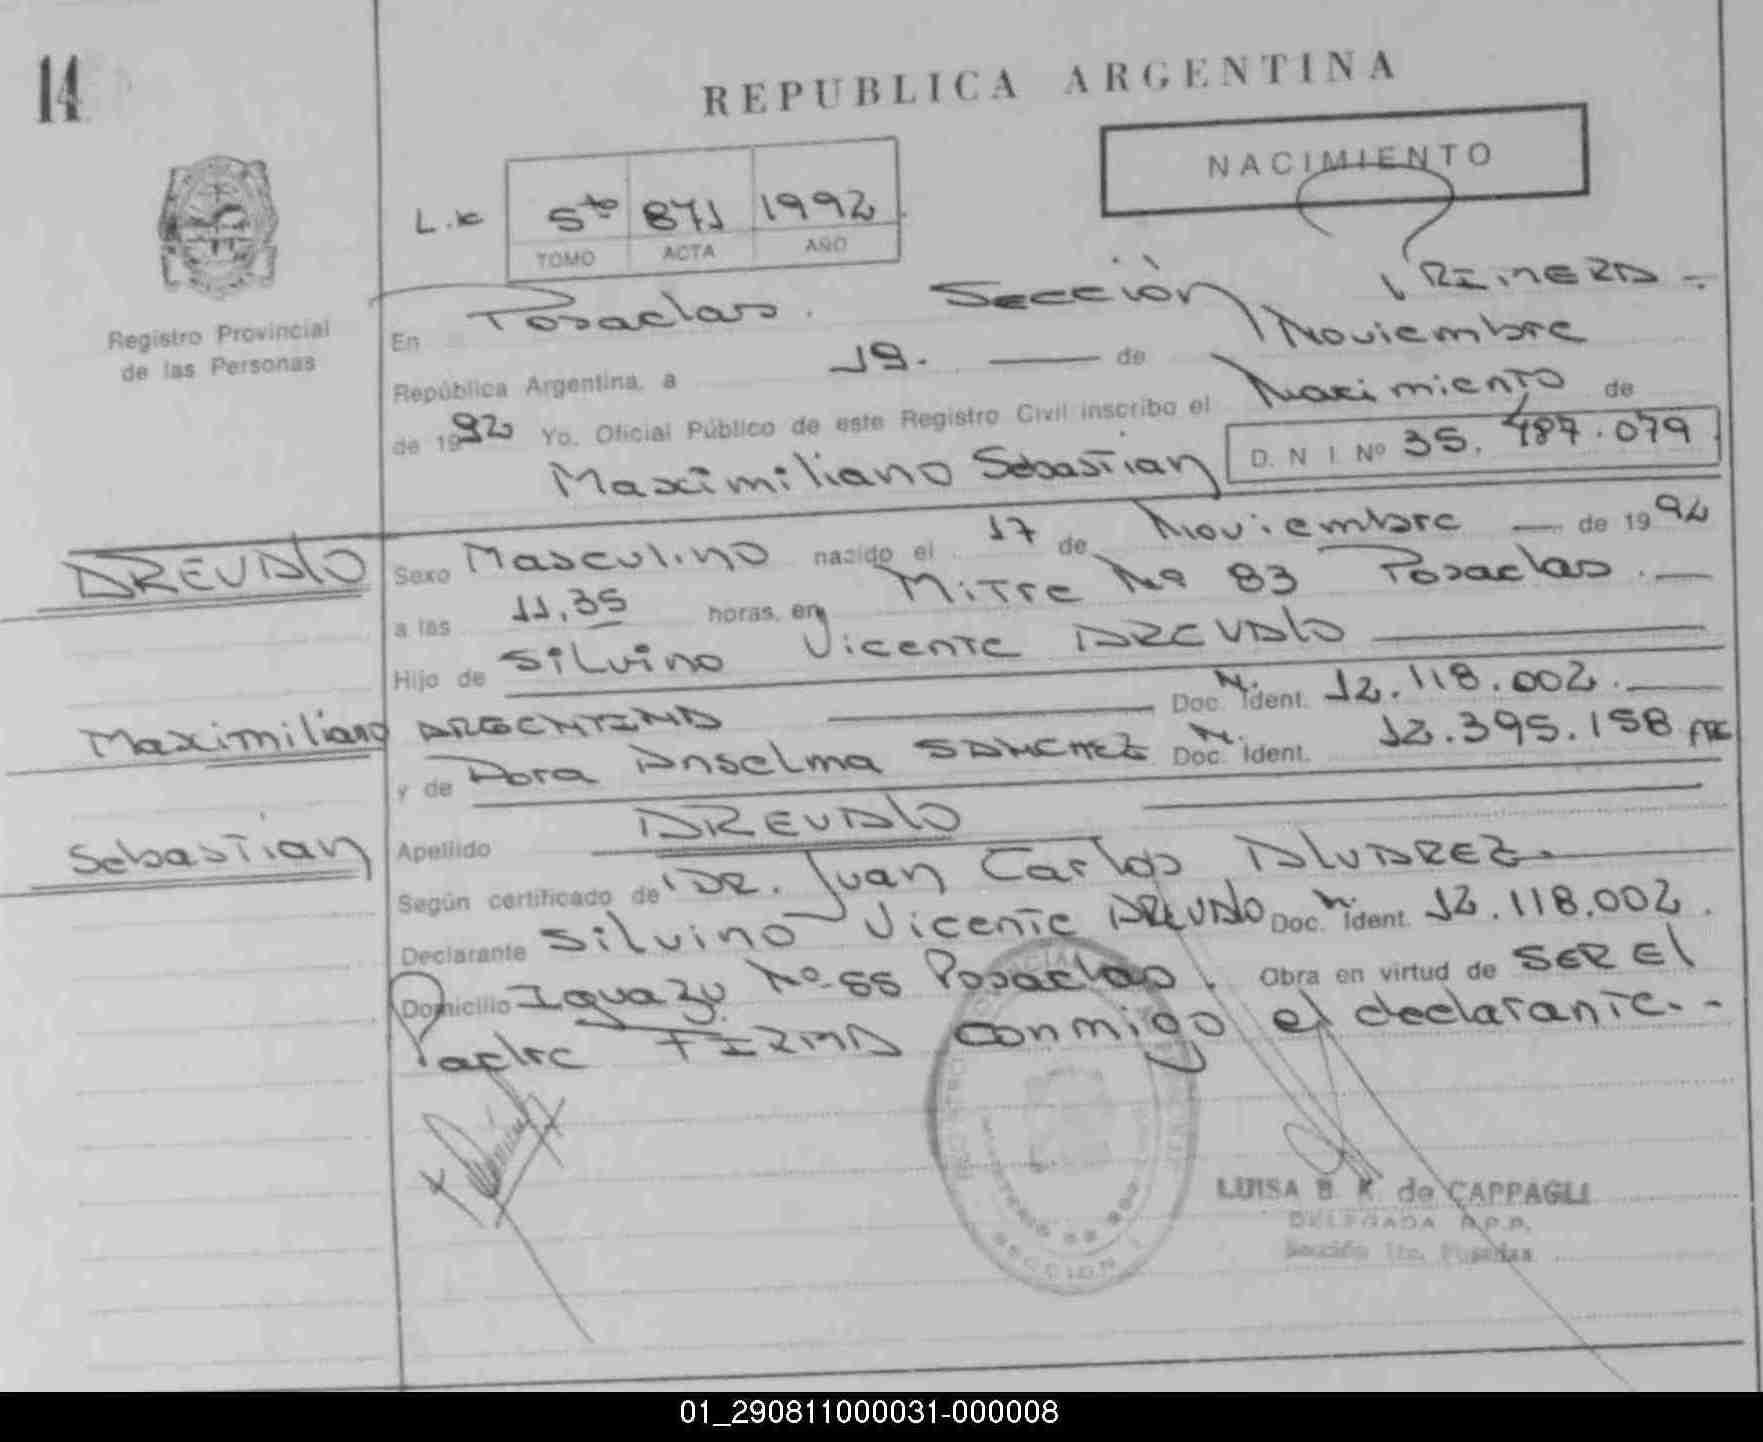 14
REPUBLICA ARGENTINA
NACIMIENTO
5to 871 1992
TOMO ACTA AÑO
Registro Provincial
de las Personas
En Posadas. Sección PRIMERA -
República Argentina, a 19. — de Noviembre
de 1992 Yo, Oficial Público de este Registro Civil inscribo el Nacimiento de
Maximiliano Sebastian D. N. I. Nº 35.487.079
AREVALO
Sexo Masculino nacido el 17 de Noviembre — de 1992
a las 11,35 horas, en Mitre Nº 83 Posadas. —
Hijo de Silvino Vicente AREVALO
Maximiliano
ARGENTINA Doc. N. Ident. 12.118.002. —
y de Dora Anselma SANCHEZ Doc. N. Ident. 12.395.158
Apellido AREVALO
Sebastian
Según certificado de DR. Juan Carlos ALVAREZ. —
Declarante Silvino Vicente AREVALO Doc. N. Ident. 12.118.002.
Domicilio Iguazu Nº 55 Posadas. Obra en virtud de SER El
Padre FIRMA conmigo el declarante. -
LUISA B. K. de CAPPAGLI
DELEGADA R.P.P.
Sección 1ra. Posadas
SECCION 1
01_290811000031-000008